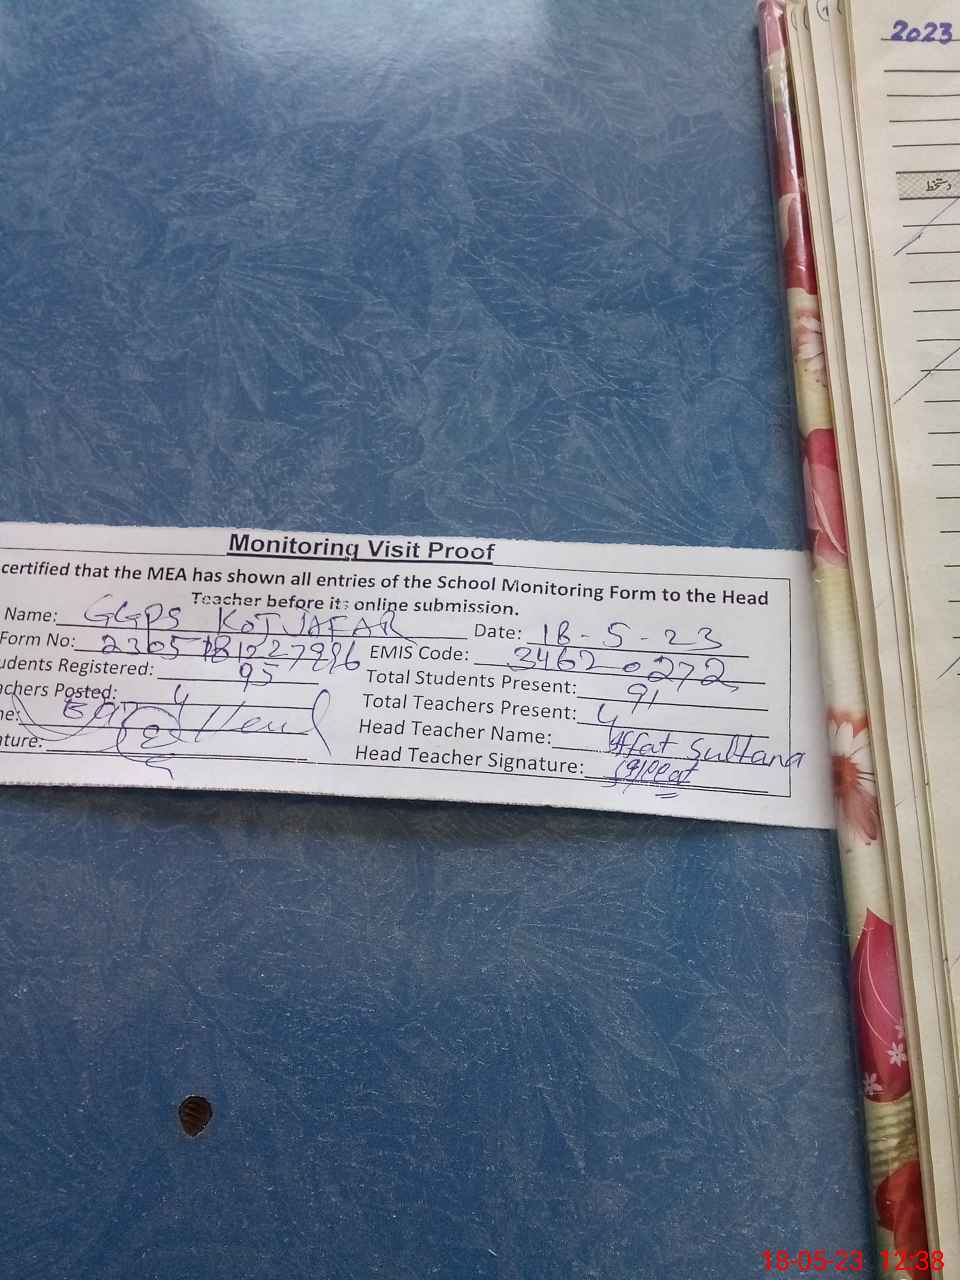 2023
دستخط
Monitoring Visit Proof
certified that the MEA has shown all entries of the School Monitoring Form to the Head
Teacher before its online submission.
Name: GGPS KOT JAFAR Date: 18-5-23
Form No: EMIS Code: 34620272
udents Registered: 95 Total Students Present: 91
achers Posted: 4 Total Teachers Present: 4
ne: Head Teacher Name: Iffat Sultana
ature: Head Teacher Signature:
18-05-23 12:38